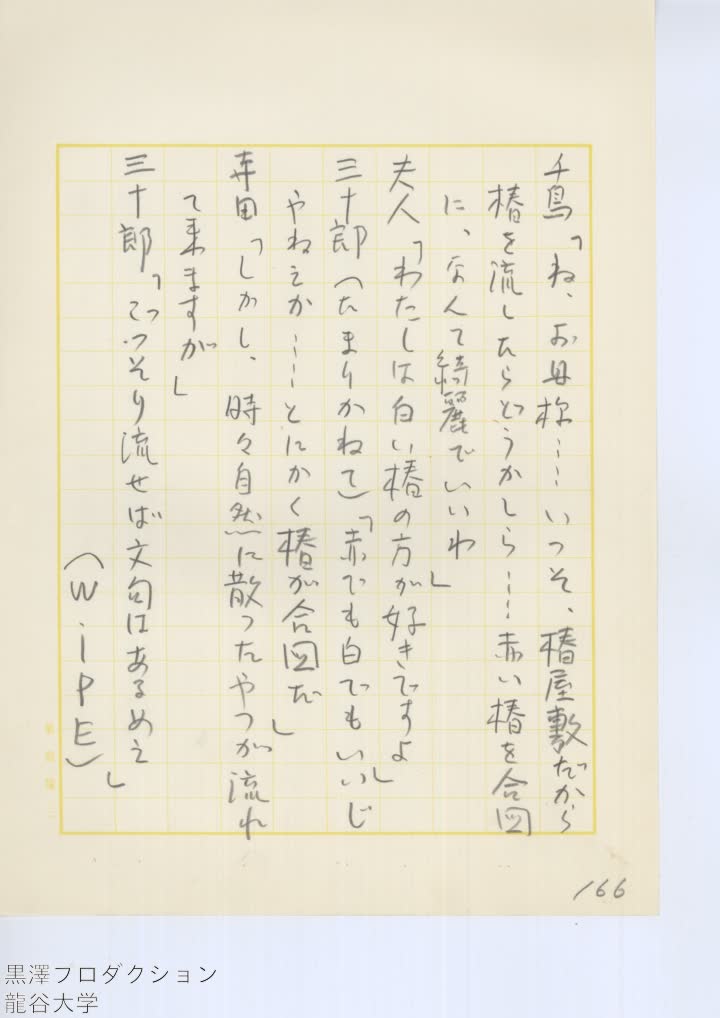 千鳥「ね、お母様……いつそ、椿屋敷だから
椿を流したらどうかしら……赤い椿を合図
に、なんて綺麗でいいわ」
夫人「わたしは白い椿の方が好きですよ」
三十郎（たまりかねて）「赤でも白でもいいじ
やねえか……とにかく椿が合図だ」
寺田「しかし、時々自然に散つたやつが流れ
て来ますが」
三十郎「ごつそり流せば文句はあるめえ」
（WiPE）
166
黒澤プロダクション
龍谷大学